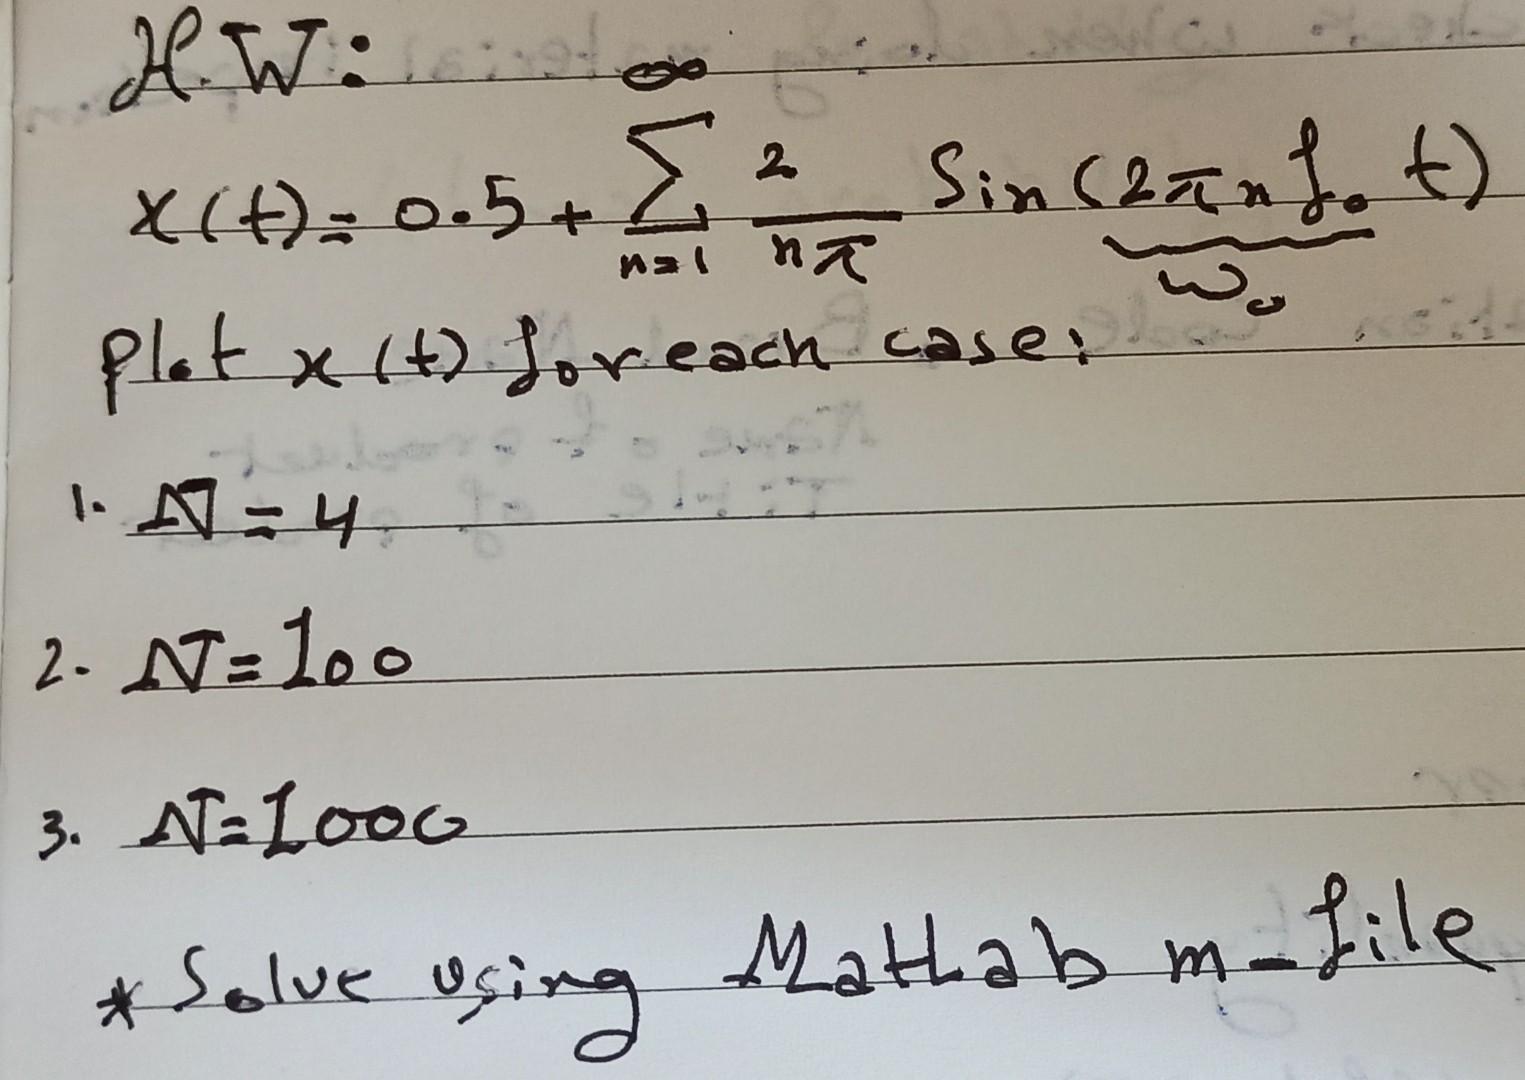 H.W:
x(t)= 0.5 + ∞ Σ n=1 2/nπ Sin(2πn f₀ t)
ω₀
plot x(t) for each case:
1. N = 4
2. N = 100
3. N = 1000
* Solve using Matlab m-file